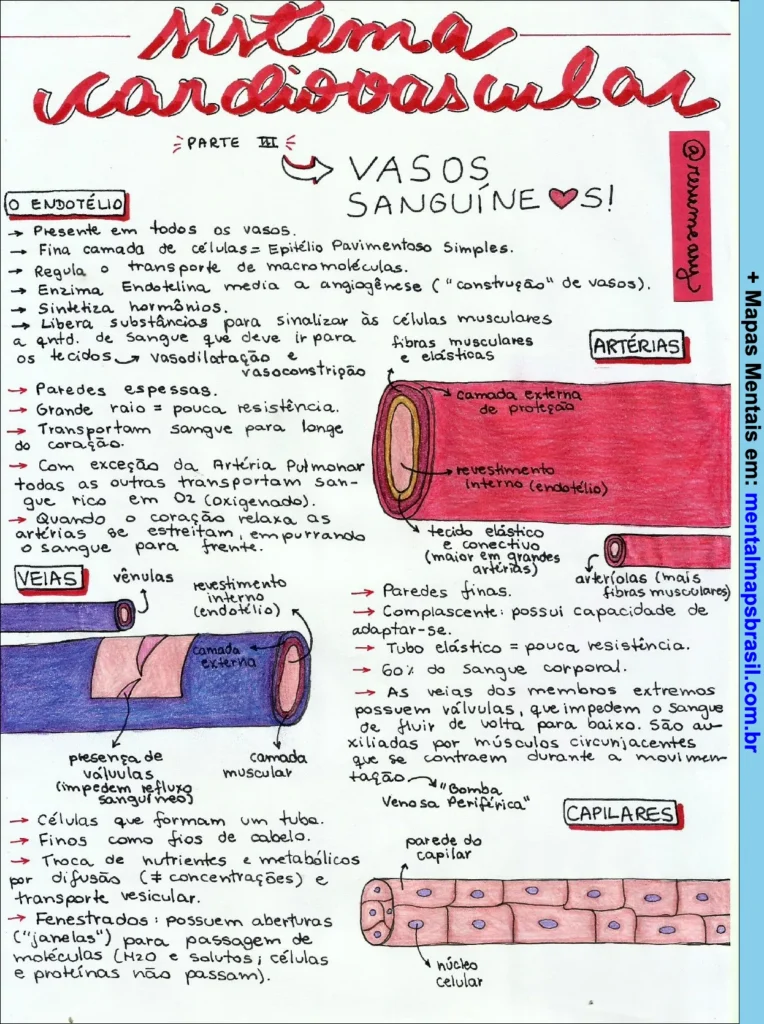 sistema
cardiovascular
PARTE III
VASOS
SANGUÍNE♥S!
@resumeany
O ENDOTÉLIO
→ Presente em todos os vasos.
→ Fina camada de células = Epitélio Pavimentoso Simples.
→ Regula o transporte de macromoléculas.
→ Enzima Endotelina media a angiogênese ("construção" de vasos).
→ Sintetiza hormônios.
→ Libera substâncias para sinalizar às células musculares
a qntd. de sangue que deve ir para
os tecidos → vasodilatação e
vasoconstrição
ARTÉRIAS
fibras musculares
e elásticas
camada externa
de proteção
revestimento
interno (endotélio)
tecido elástico
e conectivo
(maior em grandes
artérias)
arteríolas (mais
fibras musculares)
→ Paredes espessas.
→ Grande raio = pouca resistência.
→ Transportam sangue para longe
do coração.
→ Com exceção da Artéria Pulmonar
todas as outras transportam san-
gue rico em O2 (oxigenado).
→ Quando o coração relaxa as
artérias se estreitam, empurrando
o sangue para frente.
VEIAS
vênulas
revestimento
interno
(endotélio)
camada
externa
presença de
válvulas
(impedem refluxo
sanguíneo)
camada
muscular
→ Paredes finas.
→ Complascente: possui capacidade de
adaptar-se.
→ Tubo elástico = pouca resistência.
→ 60% do sangue corporal.
→ As veias dos membros extremos
possuem válvulas, que impedem o sangue
de fluir de volta para baixo. São au-
xiliadas por músculos circunjacentes
que se contraem durante a movimen-
tação → "Bomba
Venosa Periférica"
CAPILARES
→ Células que formam um tubo.
→ Finos como fios de cabelo.
→ Troca de nutrientes e metabólicos
por difusão (≠ concentrações) e
transporte vesicular.
→ Fenestrados: possuem aberturas
("janelas") para passagem de
moléculas (H2O e solutos; células
e proteínas não passam).
parede do
capilar
núcleo
celular
+ Mapas Mentais em: mentalmapsbrasil.com.br